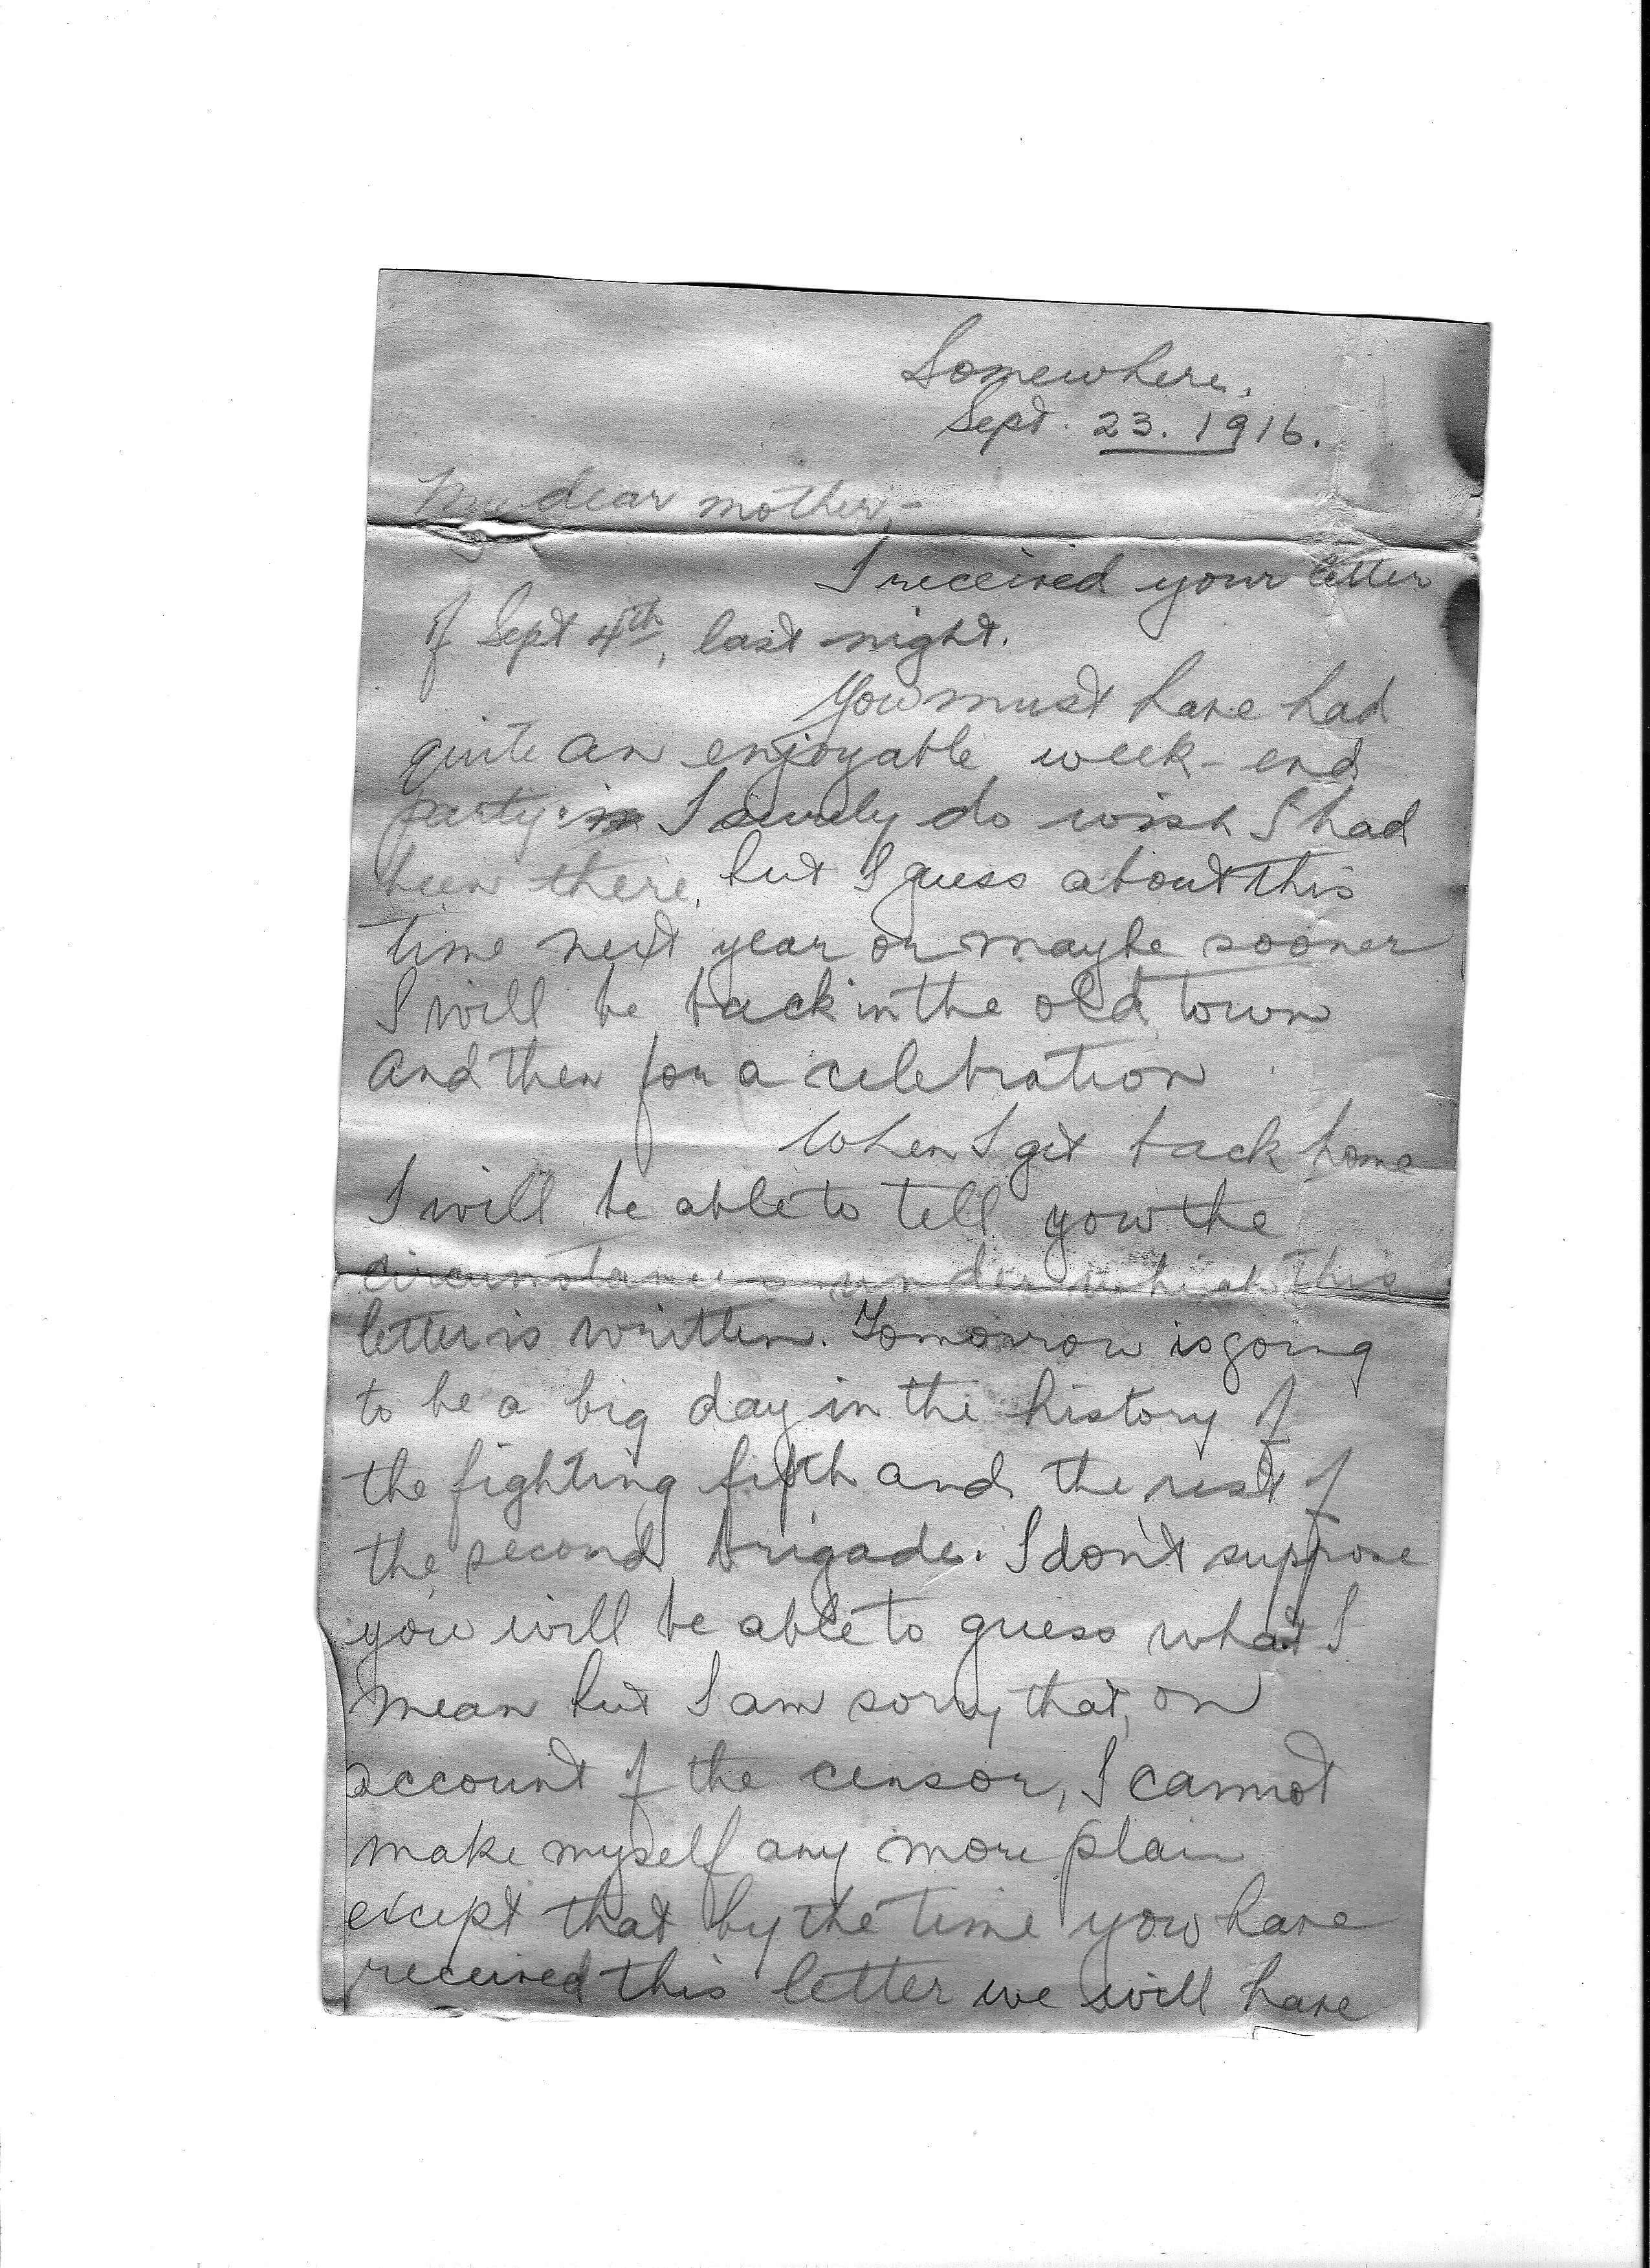 Somewhere,
Sept. 23. 1916.
My dear mother,-
I received your letter
of Sept 4th, last night.
You must have had
quite an enjoyable week-end
party. I surely do wish I had
been there, but I guess about this
time next year or maybe sooner
I will be back in the old town
and then for a celebration
When I get back home
I will be able to tell you the
circumstances under which this
letter is written. Tomorrow is going
to be a big day in the history of
the fighting fifth and the rest of
the second brigade. I don't suppose
you will be able to guess what I
mean but I am sorry that, on
account of the censor, I cannot
make myself any more plain
except that by the time you have
received this letter we will have